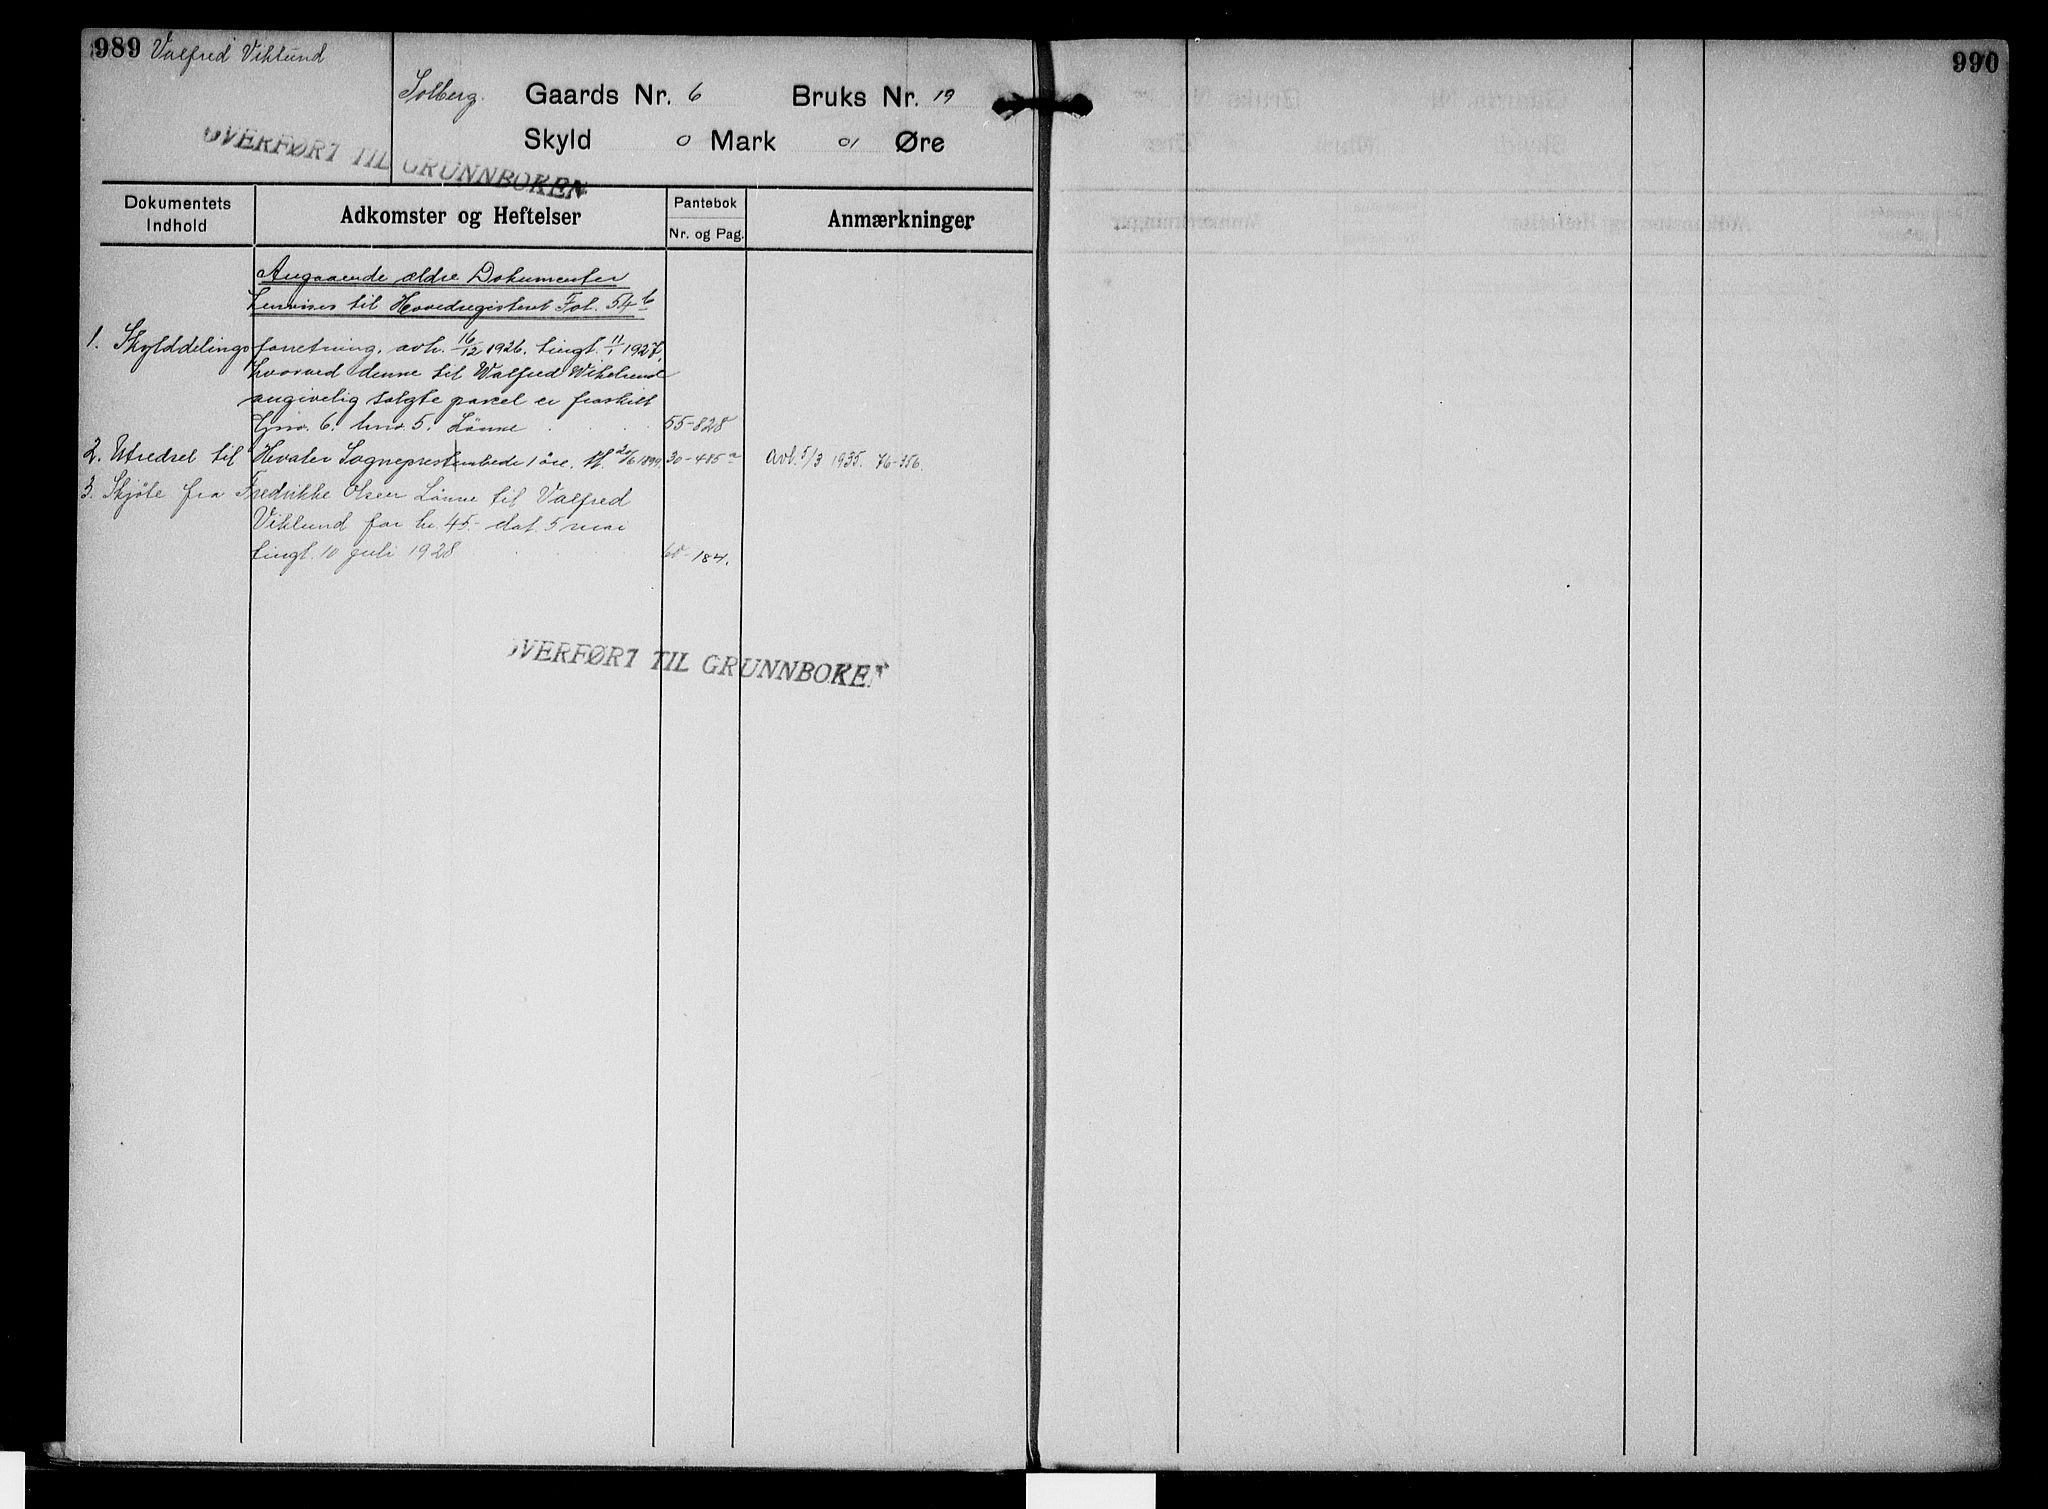 989 Valfred Viklund
990
Solberg. Gaards Nr. 6 Bruks Nr. 19
Skyld 0 Mark 01 Øre
OVERFØRT TIL GRUNNBOKEN
Dokumentets Indhold
Adkomster og Heftelser
Pantebok Nr. og Pag.
Anmærkninger
Angaaende ældre Dokumenter
henvises til Hovedregisteret Fol. 54 b
1. Skylddelings forretning, avh. 16/12 1926, tingl. 11/1 1927,
hvorved denne til Walfred Wiklund
angivelig solgte parcel er fraskilt
Gnr. 6. bnr. 5. Lönne 55-828
2. Utredsel til Hvaler Sogneprestembede 1 öre. tl. 20/6 1899. 30-485a Avl. 5/3 1935. 76-356
3. Skjöte fra Fredrikke Olsen Lönne til Valfred
Viklund for kr. 45.- dat. 5 mai
tingl. 10 juli 1928 60-184.
OVERFØRT TIL GRUNNBOKEN